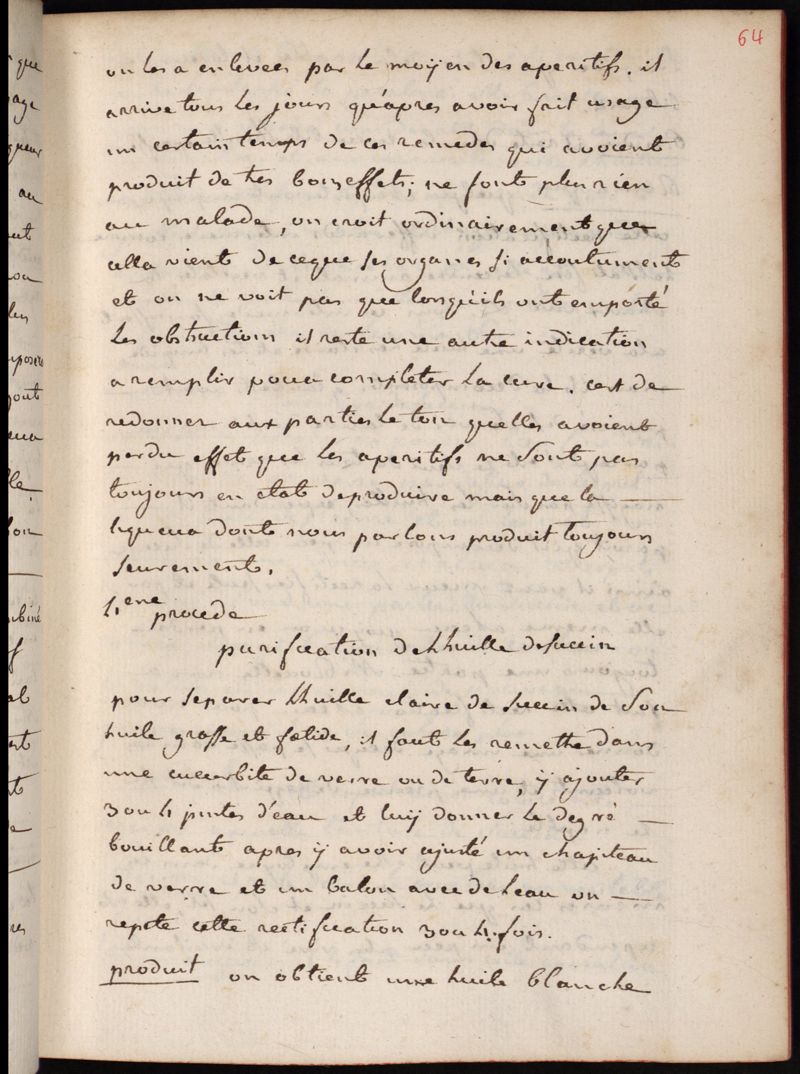 64
on les a enlevees par le moÿen des aperitifs. il
arrive tous les jours qu'apres avoir fait usage
un certain temps de ces remedes qui avoient
produit de tres bons effets; ne font plus rien
au malade, on croit ordinairement que
cella vient de ceque ses organes si accoutument
et on ne voit pas que lorsqu'ils ont emporté
les obstructions il reste une autre indication
a remplir pour completer la cure. cest de
redonner aux parties le ton quelles avoient
perdu effet que les aperitifs ne sont pas
toujours en etat de produire mais que la
liqueur dont nous parlons produit toujours
seurement.
4.eme procede
purification de lhuille de succin
pour separer lhuille claire de succin de son
huile grasse et fœtide, il faut les remettre dans
une cucurbite de verre ou de terre, ÿ ajouter
3 ou 4 pintes d'eau et luÿ donner le degré
bouillant apres ÿ avoir ajusté un chapiteau
de verre et un balon avec de leau on
repete cette rectification 3 ou 4. fois.
produit on obtient une huile blanche